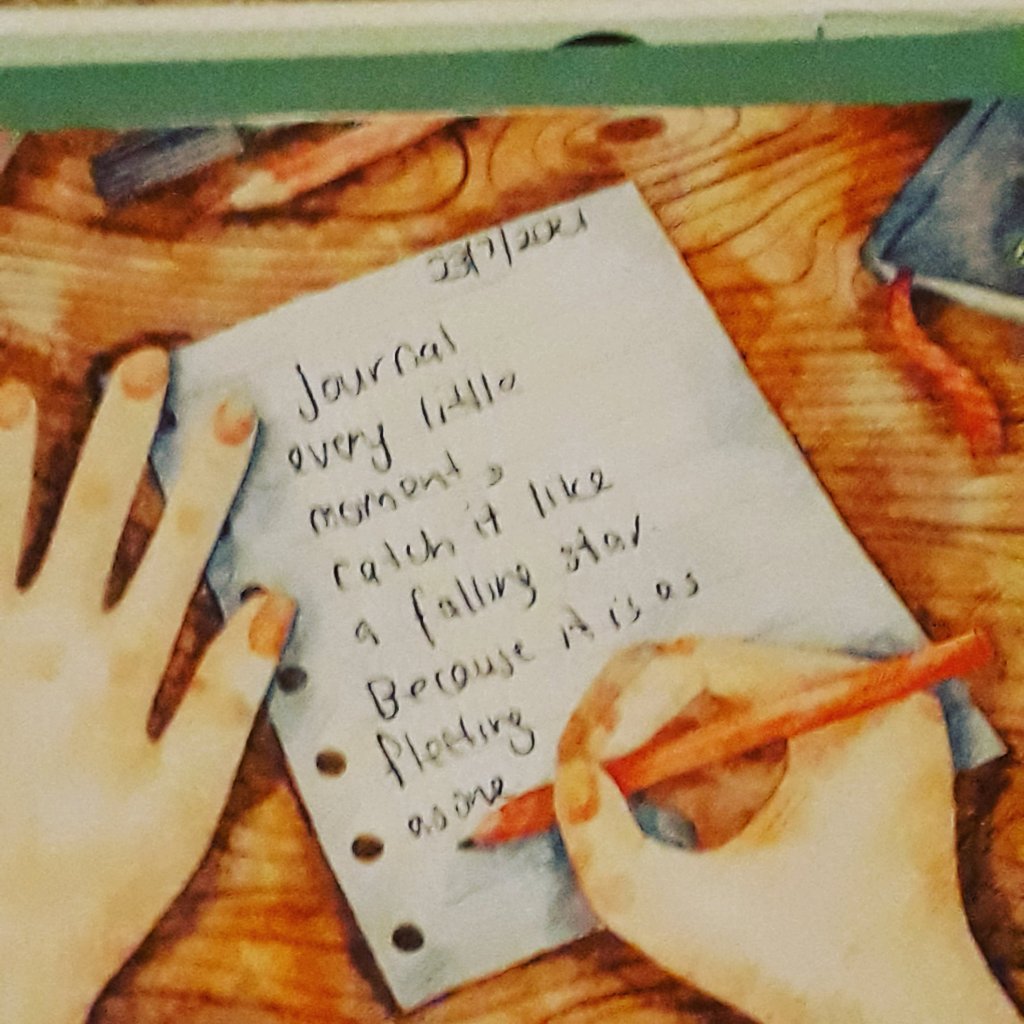 23/7/2021
Journal
every little
moment,
catch it like
a falling star.
Because it is as
fleeting
as one